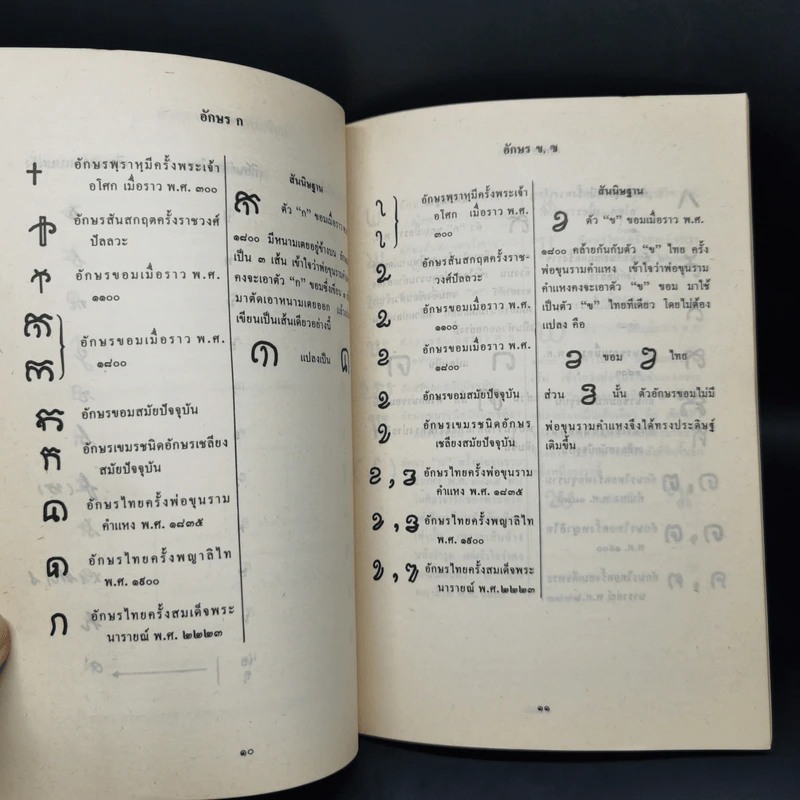 อักษร ก
อักษรพฺราหฺมีครั้งพระเจ้า
อโศก เมื่อราว พ.ศ. ๓๐๐
อักษรสันสกฤตครั้งราชวงศ์
ปัลลวะ
อักษรขอมเมื่อราว พ.ศ.
๑๑๐๐
อักษรขอมเมื่อราว พ.ศ.
๑๘๐๐
อักษรขอมสมัยปัจจุบัน
อักษรเขมรชนิดอักษรเชลียง
สมัยปัจจุบัน
อักษรไทยครั้งพ่อขุนราม
คำแหง พ.ศ. ๑๘๓๕
อักษรไทยครั้งพญาลิไท
พ.ศ. ๑๙๐๐
ก อักษรไทยครั้งสมเด็จพระ
นารายณ์ พ.ศ. ๒๒๒๓
สันนิษฐาน
ตัว "ก" ขอมเมื่อราว
๑๘๐๐ มีหนามเตยอยู่ข้างบน
เป็น ๓ เส้น เข้าใจว่าพ่อขุนราม
คงจะเอาตัว "ก" ขอมซึ่งเขียน
มาตัดเอาหนามเตยออก
เขียนเป็นเส้นเดียวอย่างนี้
แปลงเป็น
๑๐
อักษร ข, ฃ
อักษรพฺราหฺมีครั้งพระเจ้า
อโศก เมื่อราว พ.ศ.
๓๐๐
อักษรสันสกฤตครั้งราช-
วงศ์ปัลลวะ
อักษรขอมเมื่อราว พ.ศ.
๑๑๐๐
อักษรขอมเมื่อราว พ.ศ.
๑๘๐๐
อักษรขอมสมัยปัจจุบัน
อักษรเขมรชนิดอักษร
เชลียงสมัยปัจจุบัน
อักษรไทยครั้งพ่อขุนราม
คำแหง พ.ศ. ๑๘๓๕
อักษรไทยครั้งพญาลิไท
พ.ศ. ๑๙๐๐
อักษรไทยครั้งสมเด็จพระ
นารายณ์ พ.ศ. ๒๒๒๓
สันนิษฐาน
ตัว "ข" ขอมเมื่อราว พ.ศ.
๑๘๐๐ คล้ายกันกับตัว "ข" ไทย ครั้ง
พ่อขุนรามคำแหง เข้าใจว่าพ่อขุนราม
คำแหงคงจะเอาตัว "ข" ขอม มาใช้
เป็นตัว "ข" ไทยทีเดียว โดยไม่ต้อง
แปลง คือ
ขอม ไทย
ส่วน นั้น ตัวอักษรขอมไม่มี
พ่อขุนรามคำแหงจึงได้ทรงประดิษฐ์
เติมขึ้น
๑๑